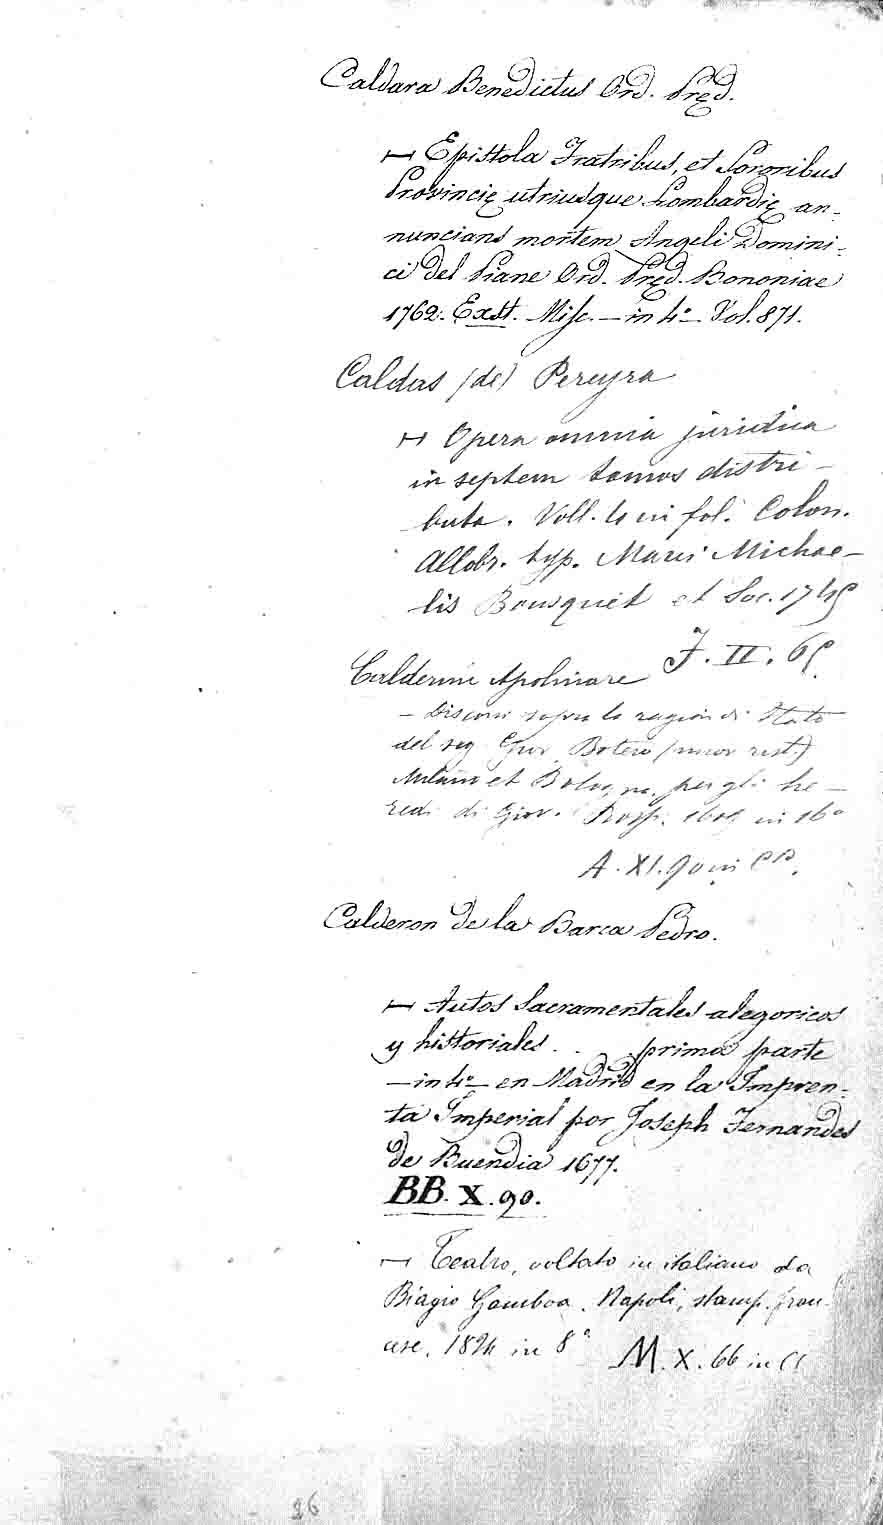 Caldara Benedictus Ord. Pręd.
⊢ Epistola Fratribus, et Sororibus
Provincię utriusque Lombardię an-
nuncians mortem Angeli Domini-
ci Del Piane Ord. Pręd. Bononiae
1762. Exst. Misc. — in 4º — Vol. 871.
Caldas (de) Pereyra
⊢ Opera omnia juridica
in septem tomos distri-
buta. Voll. 4 in fol. Colon.
Allobr. typ. Marci Michae-
lis Bousquet et Soc. 1745
F. II. 65.
Calderini Apolinare
— Discorsi sopra la ragion di Stato
del sig. Giov. Botero
Milano et Bologna, per gli he-
redi di Giov. Ross. 1609 in 16º
A. XI. 90 in CC.
Calderon de la Barca Pedro.
⊢ Autos Sacramentales alegoricos
y historiales . . prima parte
— in 4º — en Madrid en la Impren-
ta Imperial por Joseph Fernandes
de Buendia 1677.
BB. X. 90.
⊢ Teatro, voltato in italiano da
Biagio Gamboa. Napoli, stamp. fran-
cese, 1824 in 8º M. X. 66 in CC
26